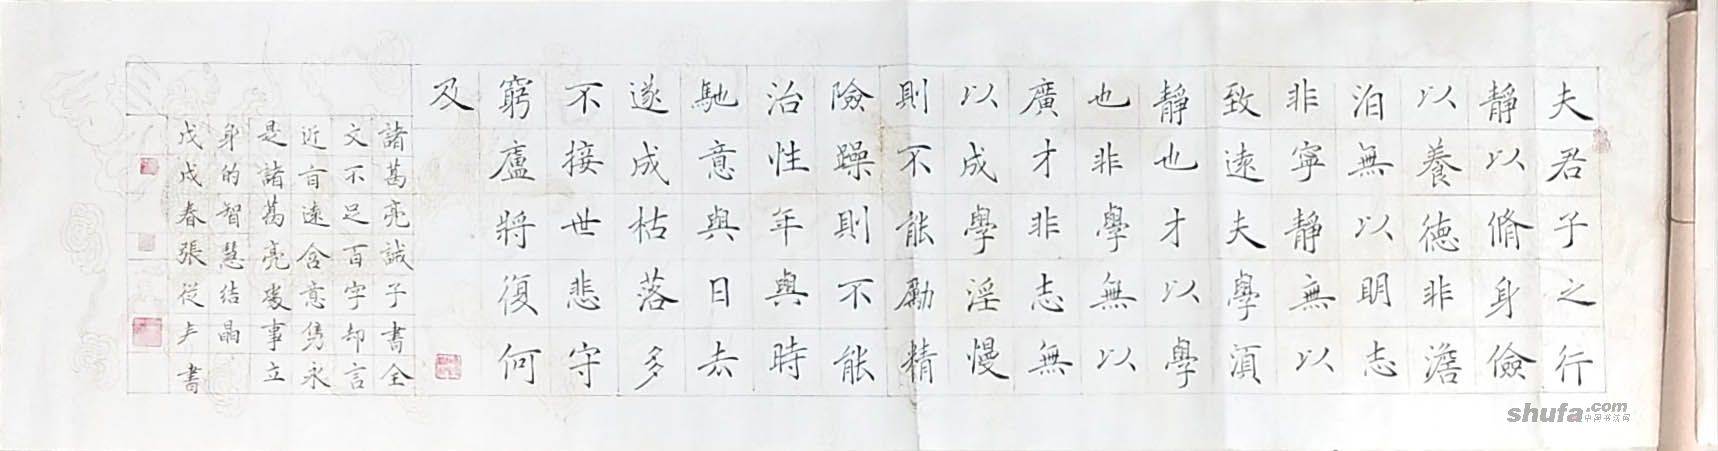 夫君子之行
靜以脩身儉
以養德非澹
泊無以明志
非寧靜無以
致遠夫學湏
靜也才以學
也非學無以
廣才非志無
以成學淫慢
則不能勵精
險躁則不能
治性年與時
馳意與日去
遂成枯落多
不接世悲守
窮廬將復何
及
諸葛亮誡子書全
文不足百字却言
近旨遠含意雋永
是諸葛亮處事立
身的智慧結晶
戊戌春張從書
shufa.com
中国书法网